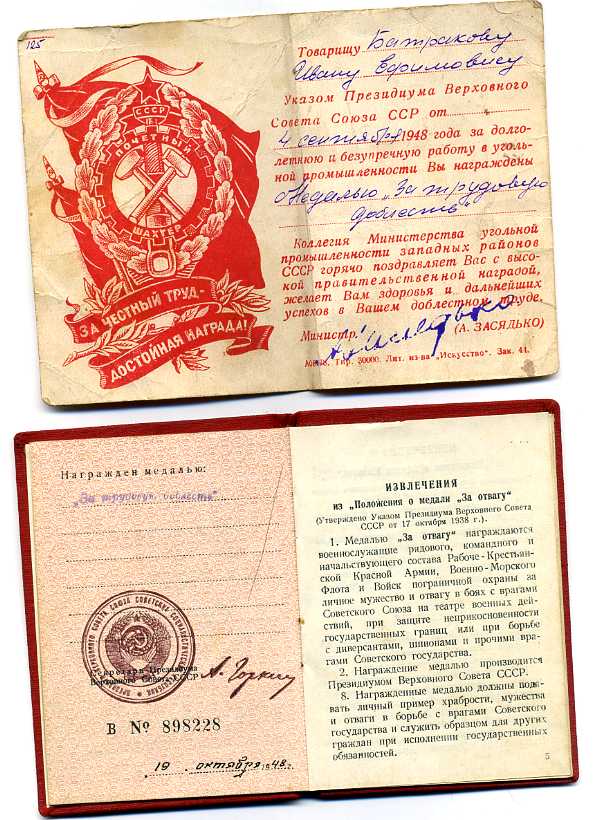 125
СССР
ПОЧЕТНЫЙ
ШАХТЕР
ЗА ЧЕСТНЫЙ ТРУД-
ДОСТОЙНАЯ НАГРАДА!
Товарищу Батракову
Ивану Ефимовичу
Указом Президиума Верховного
Совета Союза ССР от
4 сентября 1948 года за долго-
летнюю и безупречную работу в уголь-
ной промышленности Вы награждены
Медалью „За трудовую
доблесть"
Коллегия Министерства угольной
промышленности западных районов
СССР горячо поздравляет Вас с высо-
кой правительственной наградой,
желает Вам здоровья и дальнейших
успехов в Вашем доблестном труде.
Министр:
(А. ЗАСЯДЬКО)
Тир. 30000. Лит. из-ва „Искусство". Зак. 44.
Награжден медалью:
„За трудовую доблесть"
Секретарь Президиума
Верховного Совета СССР
А. Горкин
В № 898228
19 октября 1948 г.
ИЗВЛЕЧЕНИЯ
из „Положения о медали „За отвагу"
(Утверждено Указом Президиума Верховного Совета
СССР от 17 октября 1938 г.).
1. Медалью „За отвагу" награждаются
военнослужащие рядового, командного и
начальствующего состава Рабоче-Крестьян-
ской Красной Армии, Военно-Морского
Флота и Войск пограничной охраны за
личное мужество и отвагу в боях с врагами
Советского Союза на театре военных дей-
ствий, при защите неприкосновенности
государственных границ или при борьбе
с диверсантами, шпионами и прочими вра-
гами Советского государства.
2. Награждение медалью производится
Президиумом Верховного Совета СССР.
8. Награжденные медалью должны пода-
вать личный пример храбрости, мужества
и отваги в борьбе с врагами Советского
государства и служить образцом для других
граждан при исполнении государственных
обязанностей.
5